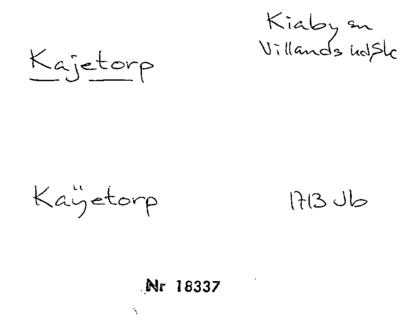 Kajetorp
Kiaby sn
Villands hd Sk
Kaÿetorp
1713 Jb
Nr 18337